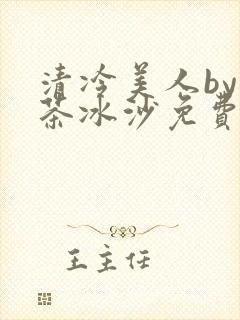 清冷美人by
茶冰沙免费
王主任